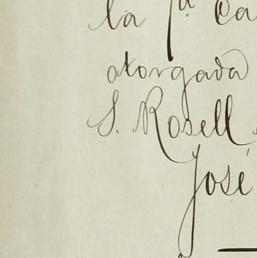 la 1ª Ca
otorgada
S. Rosell
José